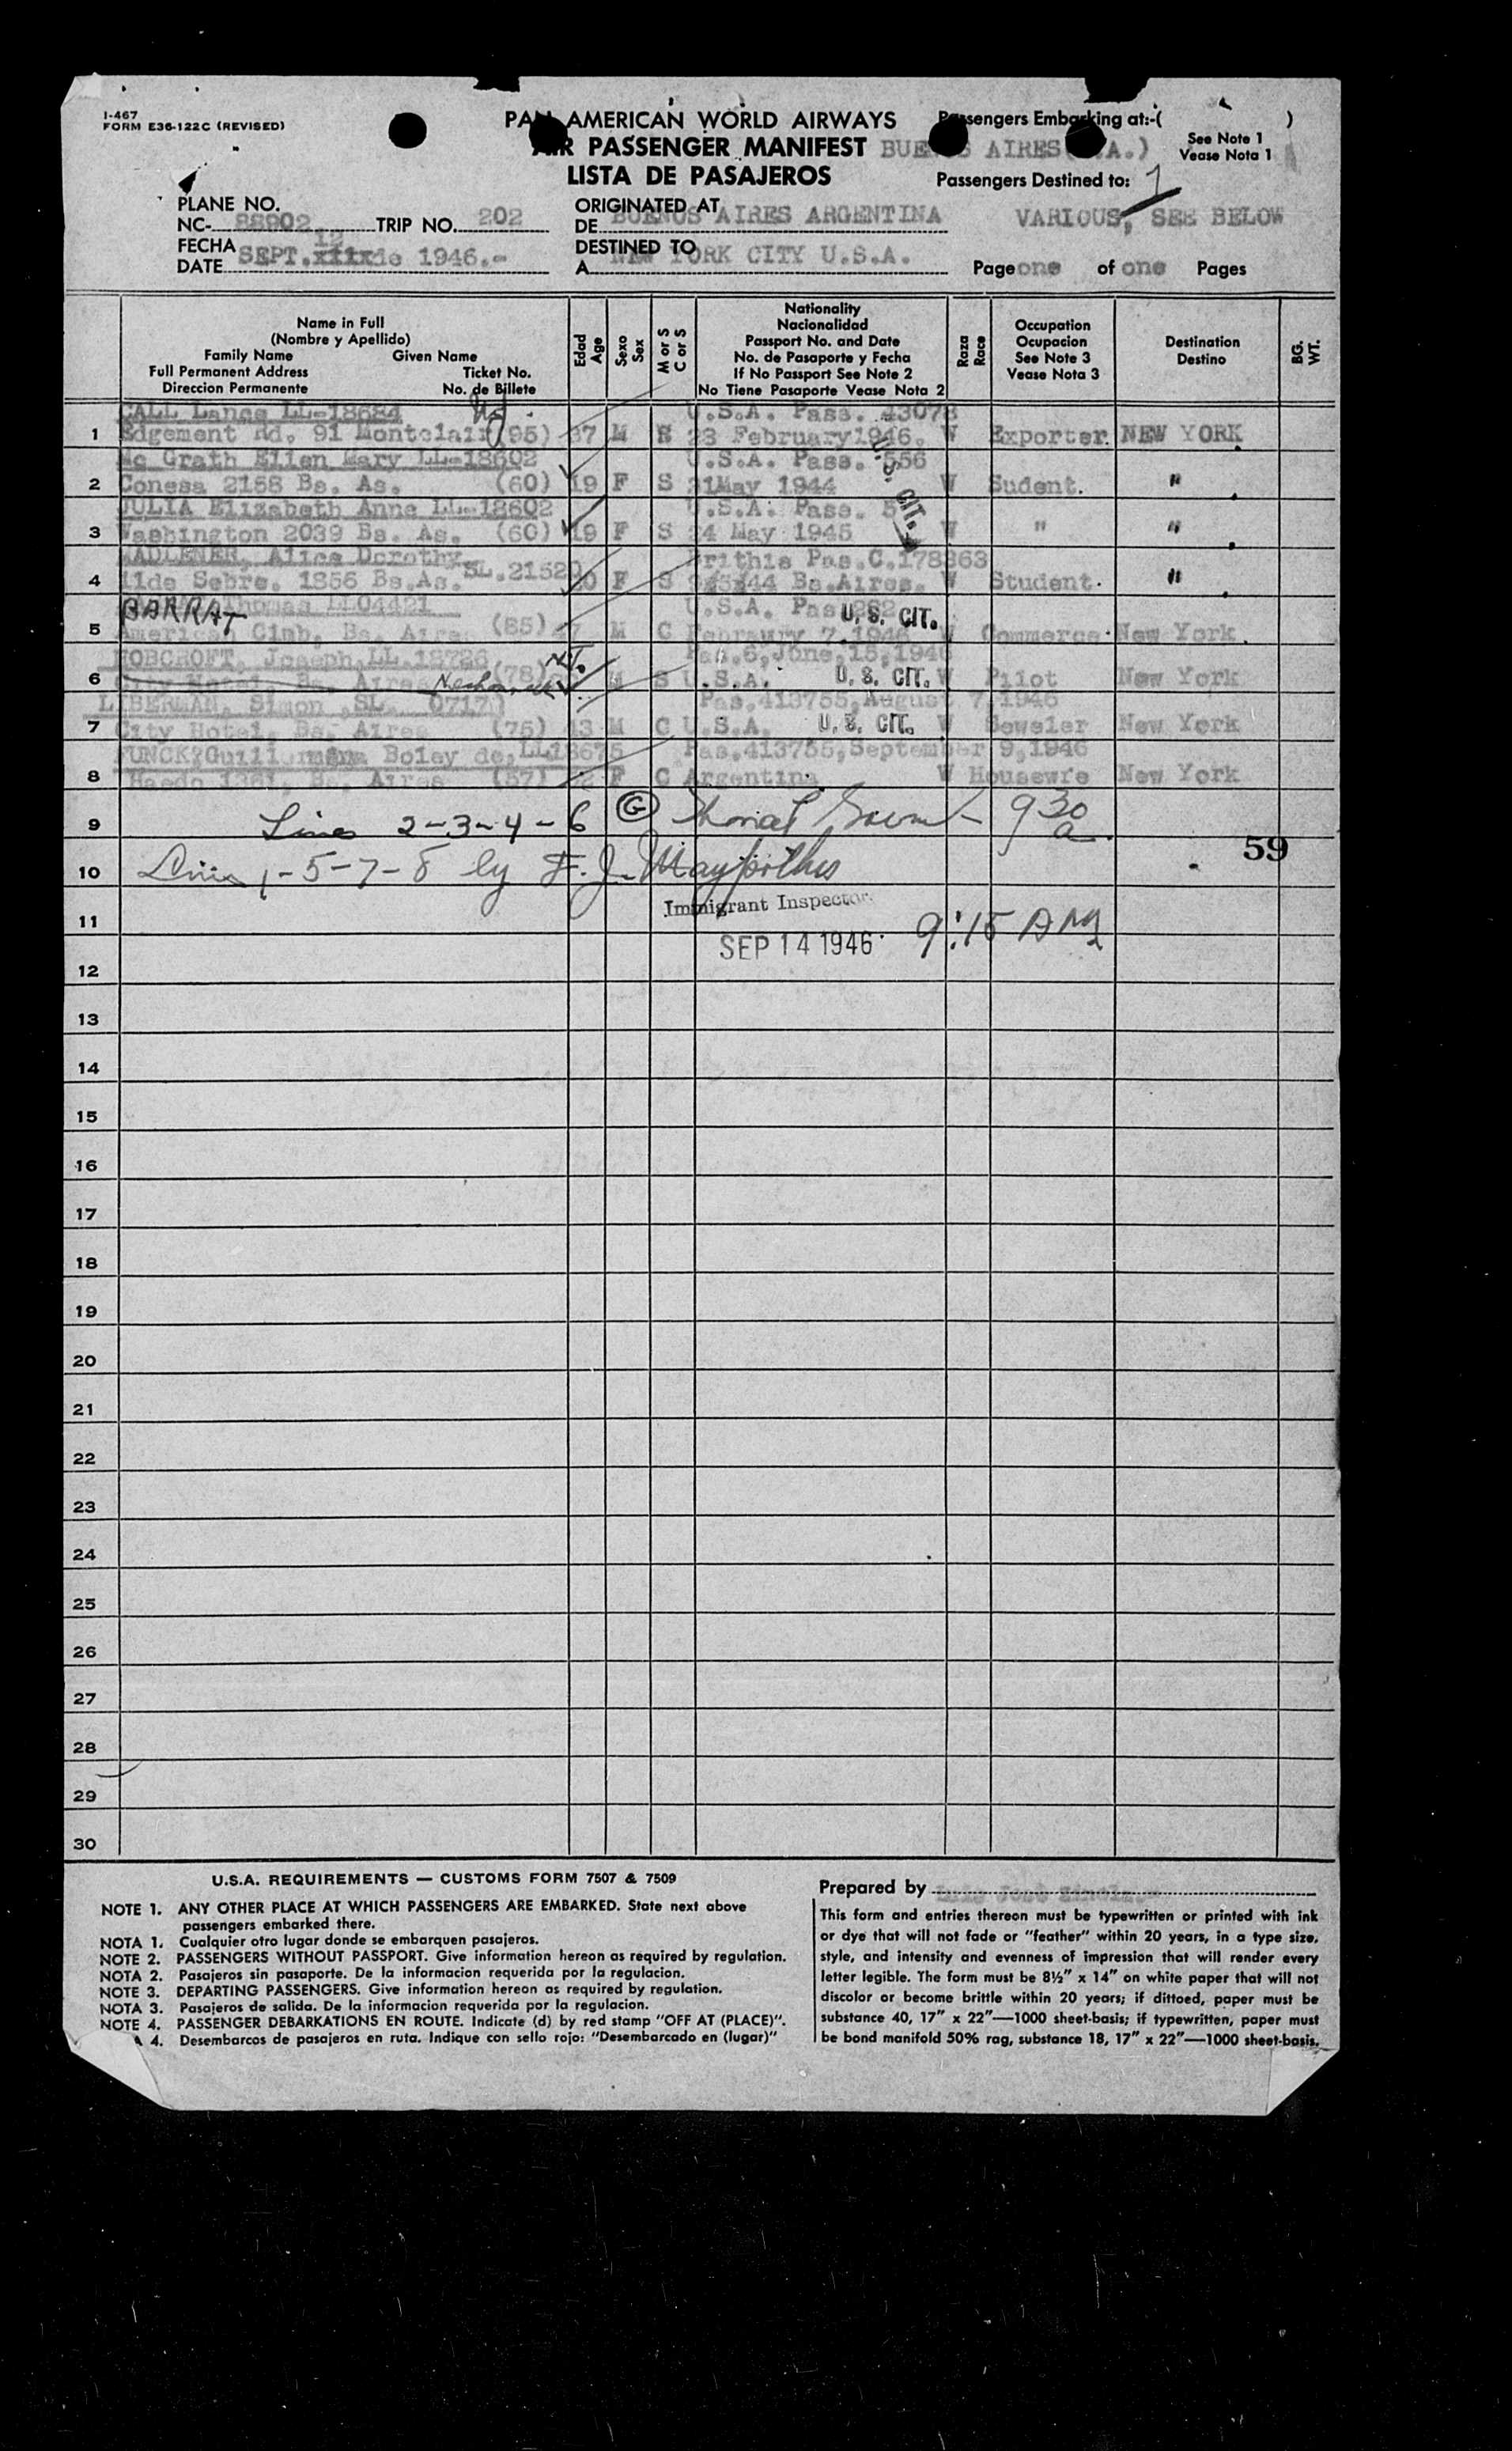 I-467
FORM E36-122C (REVISED)
PAN AMERICAN WORLD AIRWAYS
AIR PASSENGER MANIFEST
LISTA DE PASAJEROS
Passengers Embarking at:-( )
BUENOS AIRES
See Note 1
Vease Nota 1
Passengers Destined to:
1
VARIOUS, SEE BELOW
PLANE NO.
NC- 88902 TRIP NO. 202
FECHA
DATE SEPT. 12 de 1946.-
ORIGINATED AT
DE BUENOS AIRES ARGENTINA
DESTINED TO
A NEW YORK CITY U.S.A.
Page one of one Pages
Name in Full
(Nombre y Apellido)
Family Name Given Name
Full Permanent Address Ticket No.
Direccion Permanente No. de Billete
Edad
Age
Sexo
Sex
M or S
C or S
Nationality
Nacionalidad
Passport No. and Date
No. de Pasaporte y Fecha
If No Passport See Note 2
No Tiene Pasaporte Vease Nota 2
Raza
Race
Occupation
Ocupacion
See Note 3
Vease Nota 3
Destination
Destino
BG.
WT.
CALL Lange LL-18684 U.S.A. Pass. 43078
1 Edgement Rd. 91 Montclair (95) 37 M 23 February 1946. W Exporter. NEW YORK.
Mc Grath Ellen Mary LL-18602 U.S.A. Pass. 556
2 Conesa 2158 Bs. As. (60) 19 F S 21May 1944 W Sudent. " .
U.S. CIT.
JULIA Elizabeth Anne LL-18602 U.S.A. Pass.
3 Washington 2039 Bs. As. (60) 19 F S 24 May 1945 W " " .
Alice Dorothy SL.21520 Brithis Pas.C.178863
4 11de Sebre. 1856 Bs.As. F S Bs.Aires. W Student. " .
BARRAT Thomas LL04421 U.S.A. Pas
5 American Club, Bs. Aires (85) M C Febraury 7,1946 U.S. CIT. W Commerce. New York.
HOBCROFT, Joseph,LL.18726 Pas.6,June,15,1946
6 City Hotel, Bs. Aires (78) M S U.S.A. U.S. CIT. W Pilot New York
LIBERMAN, Simon ,SL. 07170 Pas,413755,August 7,1946
7 City Hotel, Bs. Aires (75) 43 M C U.S.A. U.S. CIT. W Jeweler New York
FUNCK;Guillermina Boley de,LL18675 Pas.413755,September 9,1946
8 Haedo 1381, Bs. Aires (57) F C Argentina W Housewfe New York
9 Lines 2-3-4-6 G 9 30 a.
59
10 Lines 1-5-7-8 by F. J.
Immigrant Inspector.
11 9:15 AM
SEP 14 1946
12
13
14
15
16
17
18
19
20
21
22
23
24
25
26
27
28
29
30
U.S.A. REQUIREMENTS — CUSTOMS FORM 7507 & 7509
NOTE 1. ANY OTHER PLACE AT WHICH PASSENGERS ARE EMBARKED. State next above
passengers embarked there.
NOTA 1. Cualquier otro lugar donde se embarquen pasajeros.
NOTE 2. PASSENGERS WITHOUT PASSPORT. Give information hereon as required by regulation.
NOTA 2. Pasajeros sin pasaporte. De la informacion requerida por la regulacion.
NOTE 3. DEPARTING PASSENGERS. Give information hereon as required by regulation.
NOTA 3. Pasajeros de salida. De la informacion requerida por la regulacion.
NOTE 4. PASSENGER DEBARKATIONS EN ROUTE. Indicate (d) by red stamp "OFF AT (PLACE)".
A 4. Desembarcos de pasajeros en ruta. Indique con sello rojo: "Desembarcado en (lugar)"
Prepared by
This form and entries thereon must be typewritten or printed with ink
or dye that will not fade or "feather" within 20 years, in a type size,
style, and intensity and evenness of impression that will render every
letter legible. The form must be 8½" x 14" on white paper that will not
discolor or become brittle within 20 years; if dittoed, paper must be
substance 40, 17" x 22"—1000 sheet-basis; if typewritten, paper must
be bond manifold 50% rag, substance 18, 17" x 22"—1000 sheet-basis.